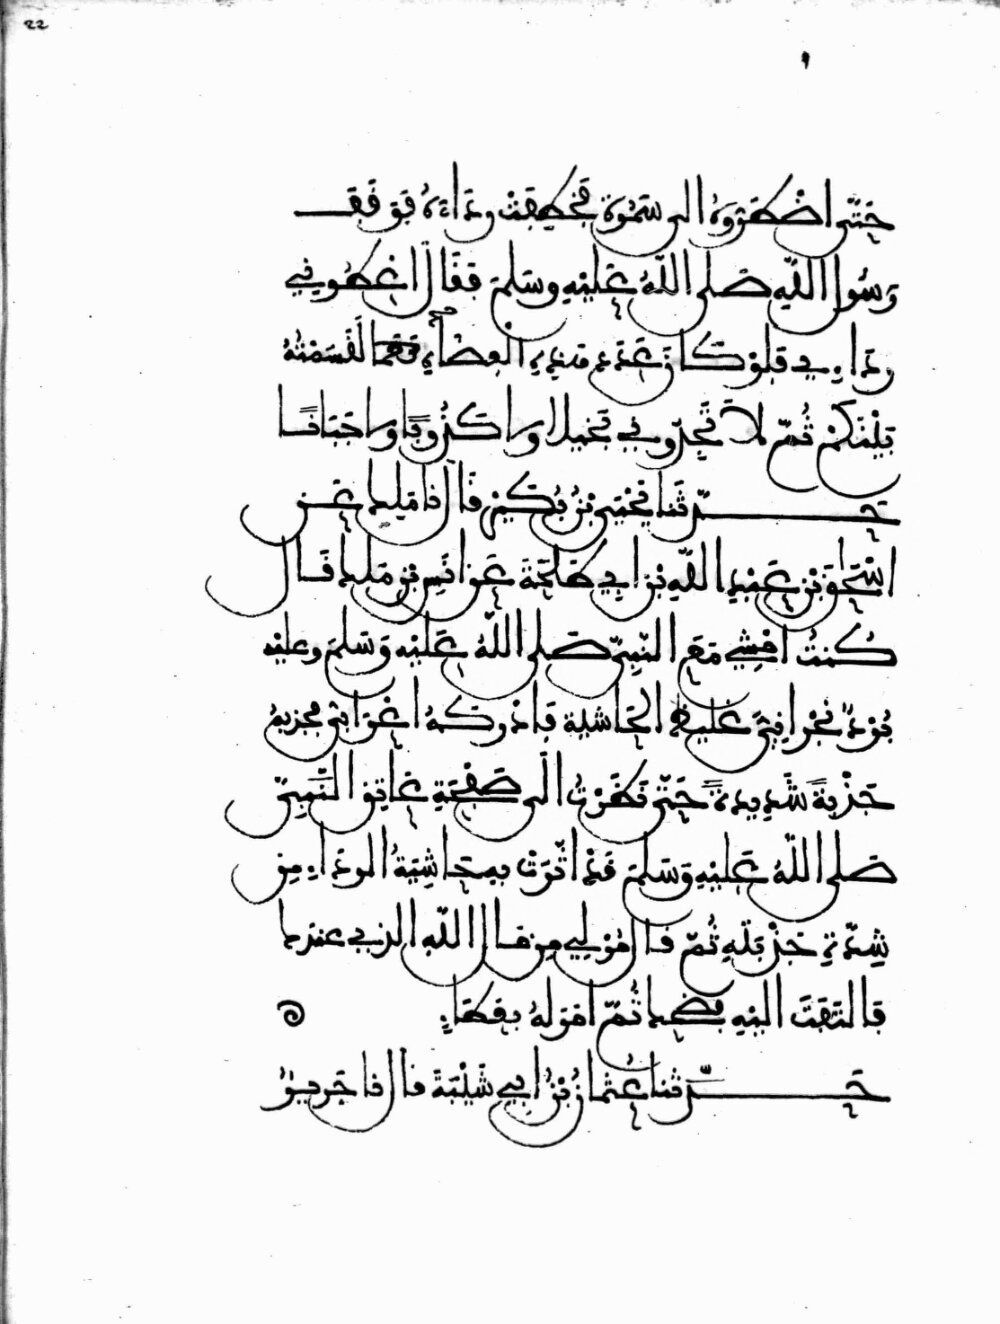 22
حَتَّى اضْطَرُّوهُ الى سَمُرَة فَخَطِفَتْ رِدَاءَهُ فَوَقَفَ
رَسُول اللَّهِ صَلى اللَّهُ عَلَيْهِ وسَلمَ فَقَال اعْطُونِي
رِدَاءِي فَلوْ كَانَ عَدَد هَذِهِ الْعِضَاهِ نَعَمًا لَقَسَمْتُهُ
بَيْنَكُمْ ثُمَّ لا تَجِدُونِي بَخِيلا ولا كَذُوبًا ولا جَبَانًا
حَدَّثَنَا يَحْيَى بْنُ بُكَيْر قَال نا مَلِك عَن
اسْحَاقَ بْنِ عَبْدِ اللَّهِ بْنِ ابِي طَلْحَةَ عَن انَسِ بْنِ مَلِك قَال
كُنتُ امْشِي مَعَ النَّبِيِّ صَلى اللَّهُ عَلَيْهِ وَسَلمَ وعليْه
بُرْدٌ نَجْرَانِيٌّ غَلِيظُ الحَاشِية فَادْرَكَهُ اعْرَابِيٌّ فجَذبهُ
جَذْبَةً شَدِيدَةً حَتَّى نَظَرْتُ الَى صَفْحَةِ عَاتِقِ النَّبِيِّ
صَلى اللَّهُ عَلَيْهِ وَسَلمَ قَدْ اثَّرَتْ بِهِ حَاشِيَةُ الرِدَاءِ مِن
شِدَّةِ جَذْبَتِهِ ثُمَّ قَال مُرْ لِي مِن مَال اللَّهِ الذِي عندك
فَالتَفَتَ الَيْهِ فضَحِك ثُمَّ امَرَ لَهُ بِعَطَاءٍ
حَدَّثَنَا عُثْمَانُ بْنُ ابِي شَيْبَةَ قَال نا جَرِيرٌ